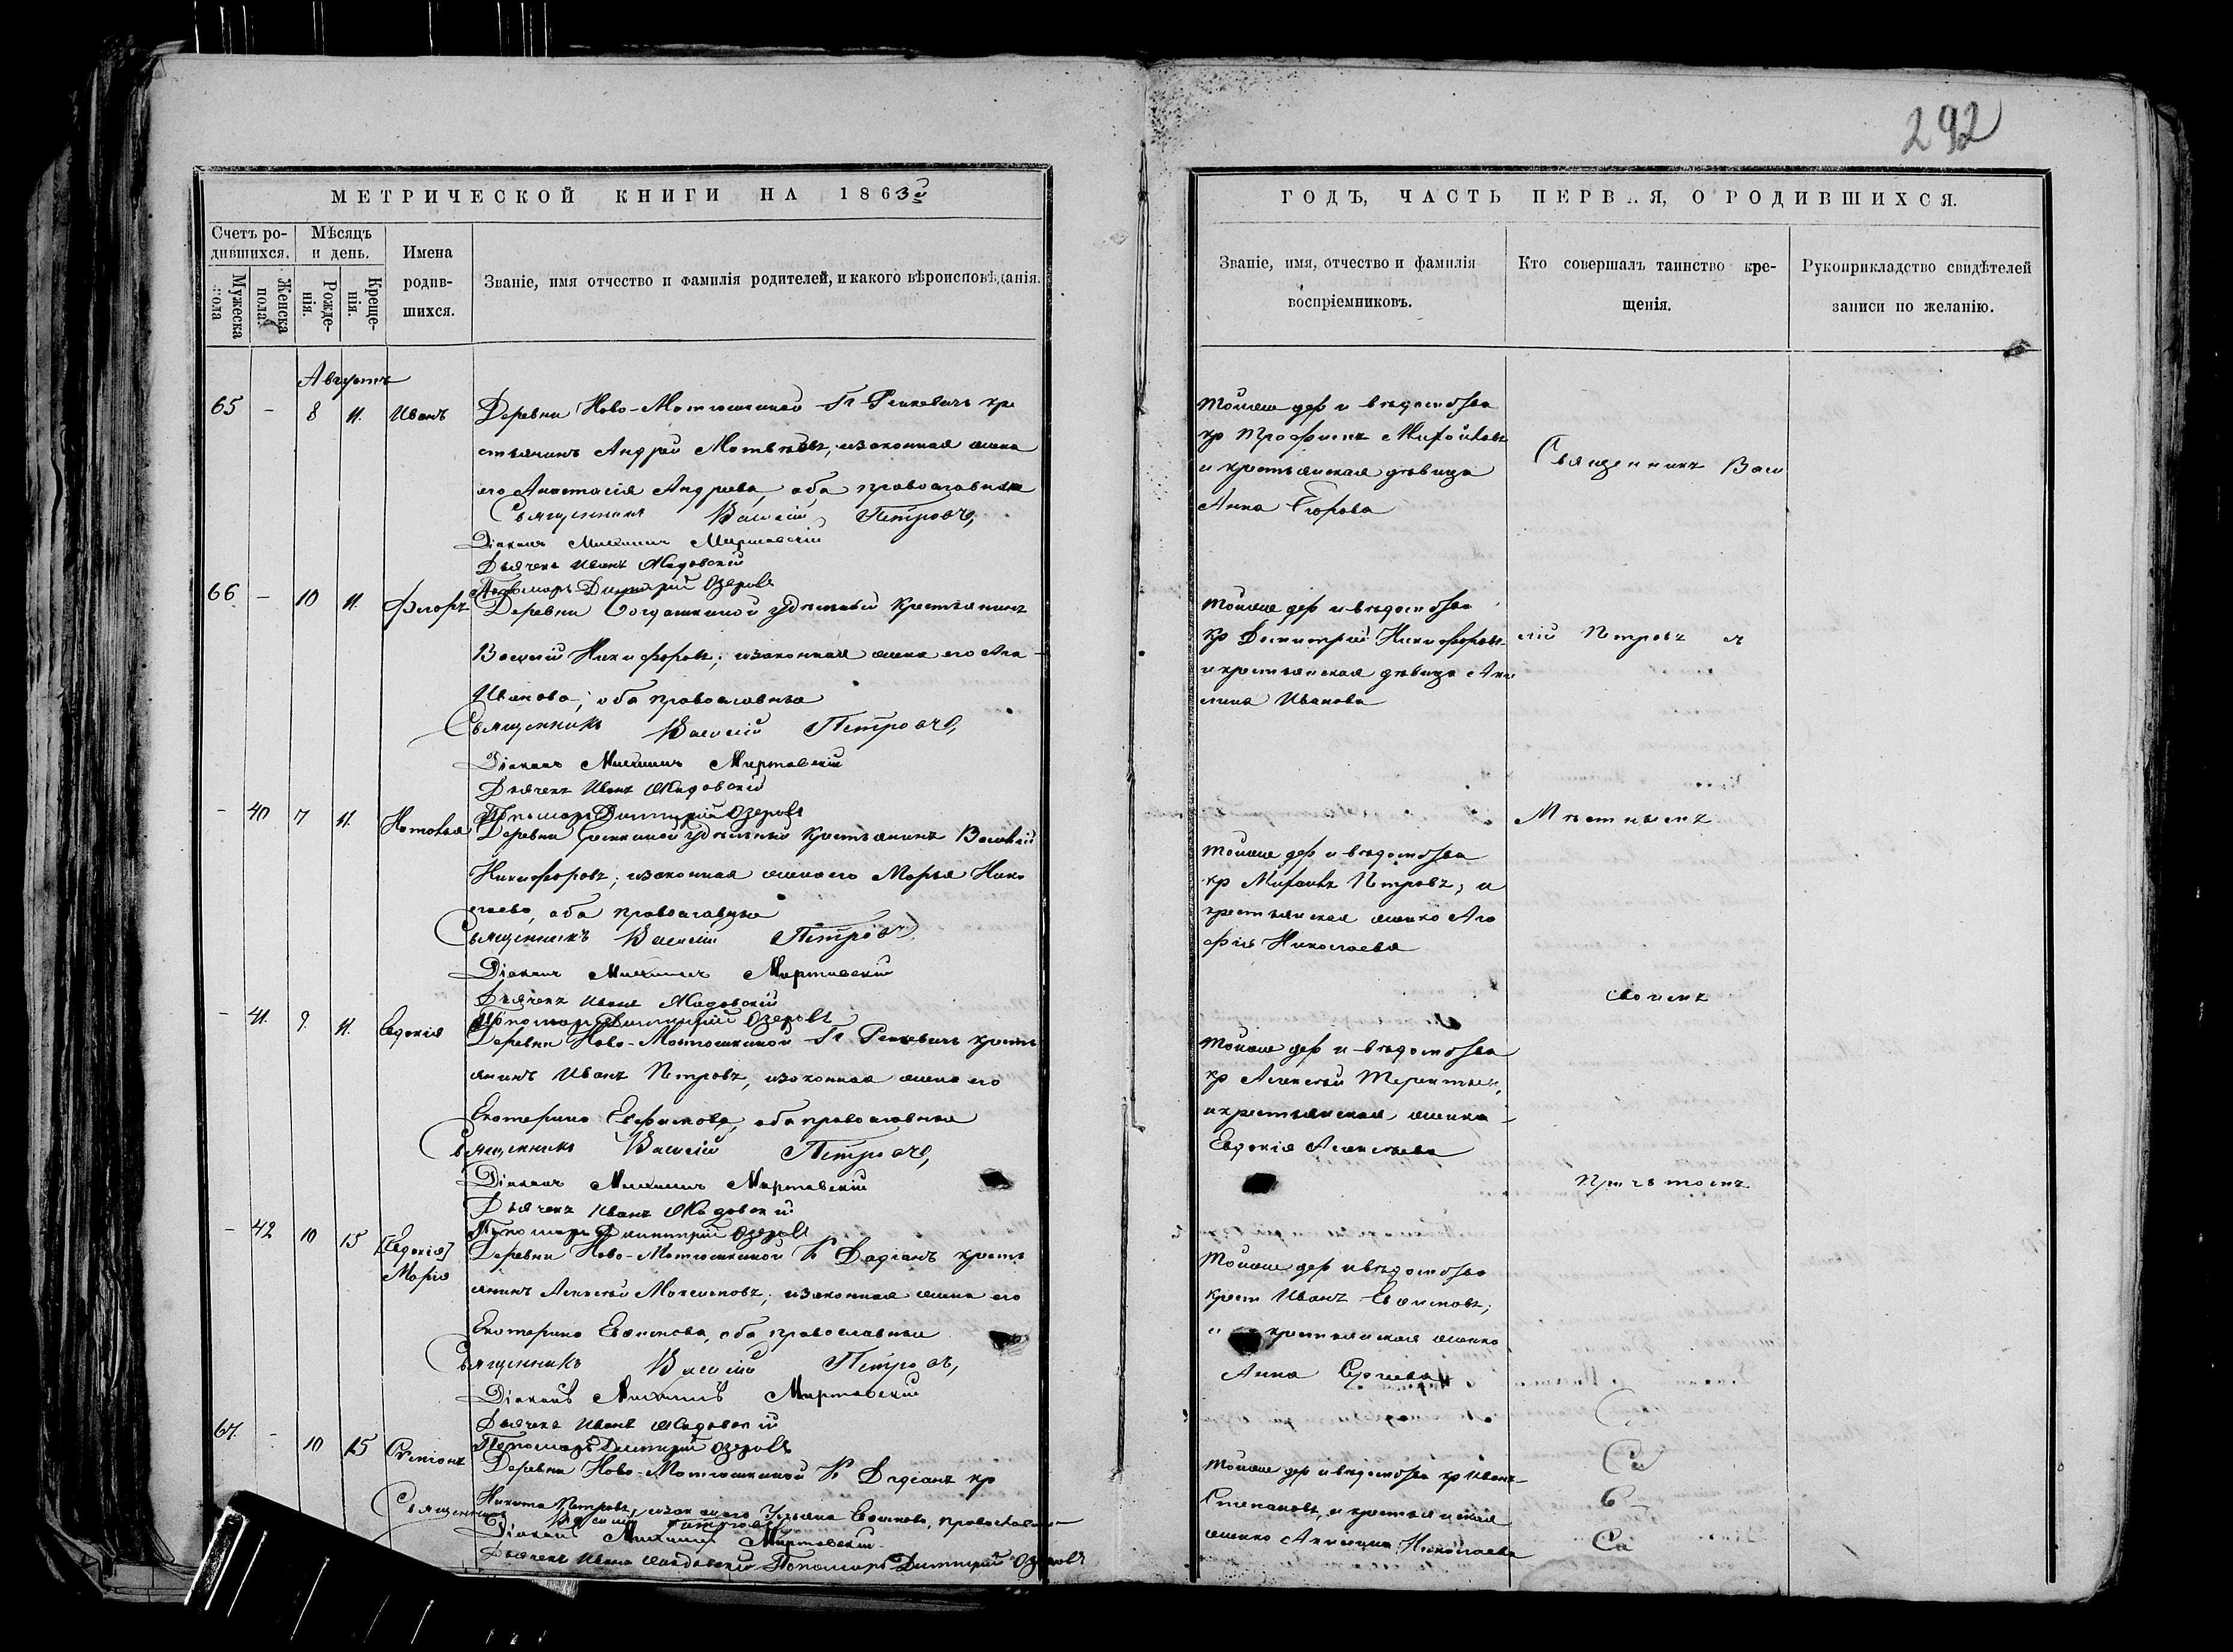 292
МЕТРИЧЕСКОЙ КНИГИ НА 1863й
Счетъ ро-
дившихся.
Мужеска
пола
Женска
пола
Мѣсяцъ
и день.
Рожде-
нія.
Креще-
нія.
Имена
родив-
шихся.
Званіе, имя отчество и фамилія родителей, и какого вѣроисповѣданія.
Августъ
65 - 8 11. Иванъ Деревни Ново-Матюшкиной Г. Ренкевичъ кре
стьянинъ Андрей Матвѣевъ, изаконная жена
его Анастасія Андреева, оба православные
Священникъ Василій Петровъ,
Діаконъ Михаилъ Миртовскій
Дьячекъ Иванъ Жадовскій
Пономарь Димитрій Озеровъ
66 - 10 11. Флоръ Деревни Богдашкиной удѣльный крестьянинъ
Василій Никифоровъ, изаконная жена его
Иванова, оба православные
Священникъ Василій Петровъ,
Діаконъ Михаилъ Миртовскій
Дьячекъ Иванъ Жадовскій
Пономарь Димитрій Озеровъ
- 40 7 11. Наталья Деревни удѣльный крестьянинъ Василій
Никифоровъ, изаконная жена его Марья Нико
лаева, оба православные
Священникъ Василій Петровъ
Діаконъ Михаилъ Миртовскій
Дьячекъ Иванъ Жадовскій
Пономарь Димитрій Озеровъ
- 41. 9. 11. Евдокія Деревни Ново-Матюшкиной Г. Ренкевичъ кресть
янинъ Иванъ Петровъ, изаконная жена его
Екатерина Ефимова, оба православные
Священникъ Василій Петровъ,
Діаконъ Михаилъ Миртовскій
Дьячекъ Иванъ Жадовскій
Пономарь Димитрій Озеровъ
- 42 10 15 [Евдокія] Деревни Ново-Матюшкиной К. Дадіанъ кресть
Марія
янинъ Алексѣй Максимовъ, изаконная жена его
Екатерина Евдокимова, оба православные
Священникъ Василій Петровъ,
Діаконъ Михаилъ Миртовскій
Дьячекъ Иванъ Жадовскій
Пономарь Димитрій Озеровъ
67. - 10 15 Деревни Ново-Матюшкиной К. Дадіанъ кр
Никита Петровъ, изак жена его Ульяна православные
Священникъ Василій Петровъ
Діаконъ Михаилъ Миртовскій
Дьячекъ Иванъ Жадовскій Пономарь Димитрій Озеровъ
ГОДЪ, ЧАСТЬ ПЕРВАЯ, О РОДИВШИХСЯ.
Званіе, имя, отчество и фамилія
воспріемниковъ.
Кто совершалъ таинство кре-
щенія.
Рукоприкладство свидѣтелей
записи по желанію.
Тойже дер и вѣдомства
кр Трофимъ Михайловъ
и крестьянская дѣвица
Анна Егорова
Тойже дер и вѣдомства
кр Димитрій Никифоровъ
и крестьянская дѣвица Аку
лина Иванова
Тойже дер и вѣдомства
кр Михаилъ Петровъ, и
крестьянская женка Ага
фія Николаева
Тойже дер и вѣдомства
кр Алексѣй Терентьевъ,
и крестьянская женка
Евдокія Алексѣева
Тойже дер и вѣдомства
крест Иванъ
и крестьянская женка
Анна Сергеева
Тойже дер и вѣдомства кр Иванъ
Степановъ, и крестьянская
женка Акилина Николаева
Священникъ Васи
лій Петровъ съ
Мѣстнымъ
своимъ
Причтомъ